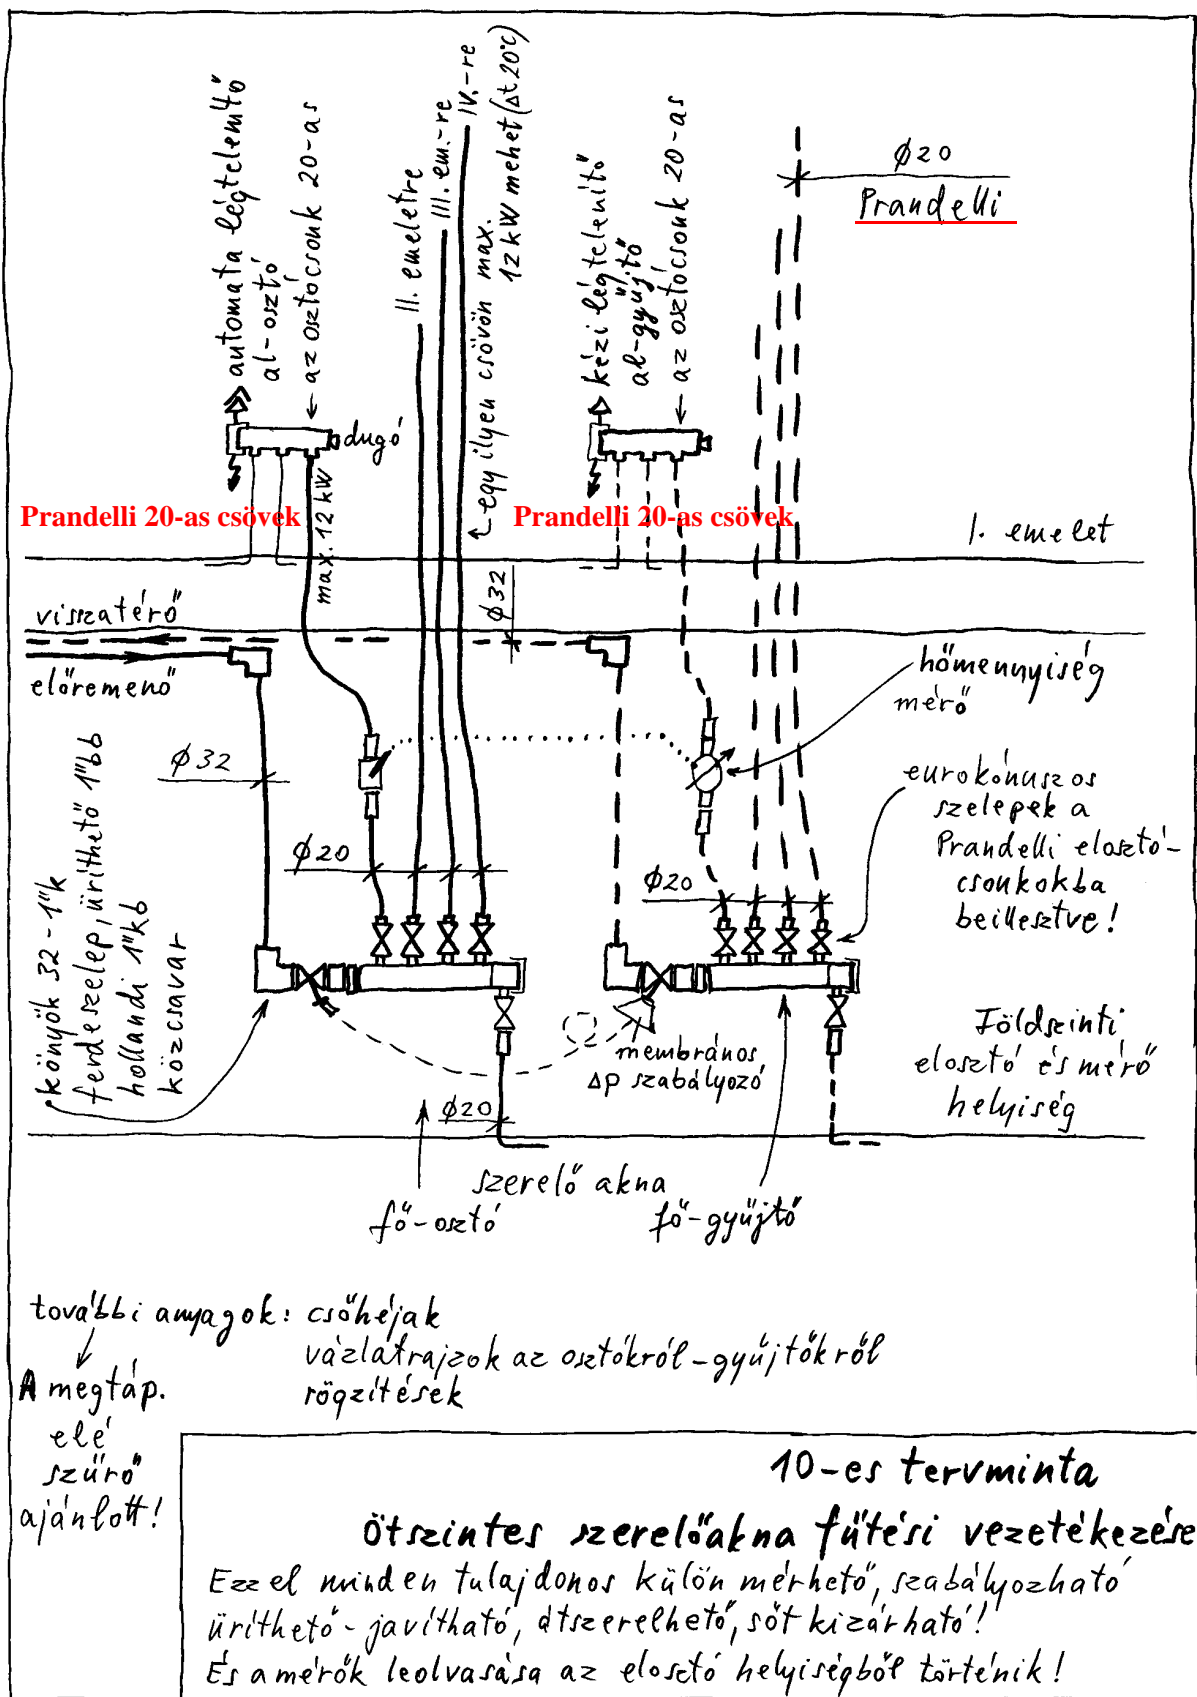 automata légtelenítő
al-osztó
az osztócsonk 20-as
dugó
II. emeletre
III. em.-re
IV.-re
egy ilyen csövön max.
12 kW mehet (Δt 20°C)
kézi légtelenítő
al-gyűjtő
az osztócsonk 20-as
ϕ20
Prandelli
Prandelli 20-as csövek
Prandelli 20-as csövek
max. 12 kW
I. emelet
visszatérő
előremenő
ϕ32
ϕ32
hőmennyiség
mérő
ϕ20
ϕ20
eurokónuszos
szelepek a
Prandelli elosztó-
csonkokba
beillesztve!
könyök 32 - 1"k
ferdeszelep, üríthető 1"bb
hollandi 1"kb
közcsavar
membrános
Δp szabályozó
Földszinti
elosztó és mérő
helyiség
ϕ20
szerelő akna
fő-osztó
fő-gyűjtő
további anyagok: csőhéjak
vázlatrajzok az osztókról-gyűjtőkről
rögzítések
A megtáp.
elé
szűrő
ajánlott!
10-es tervminta
Ötszintes szerelőakna fűtési vezetékezése
Ezzel minden tulajdonos külön mérhető, szabályozható
üríthető - javítható, átszerelhető, sőt kizárható!
És a mérők leolvasása az elosztó helyiségből történik!